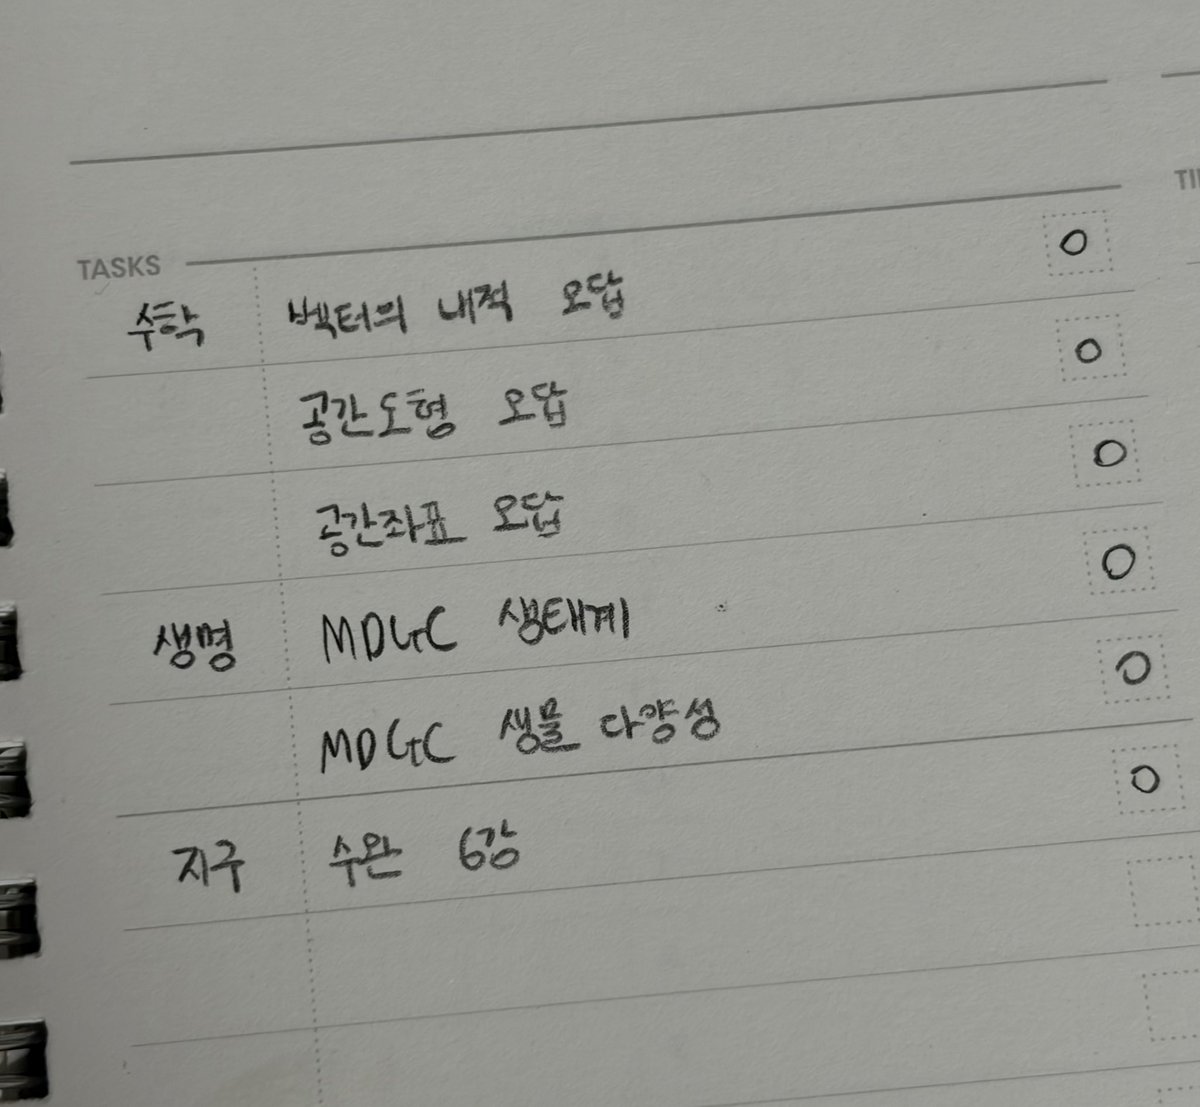 TASKS
수학 벡터의 내적 오답 O
공간도형 오답 O
공간좌표 오답 O
생명 MDGC 생태계 O
MDGC 생물 다양성 O
지구 수완 6강 O